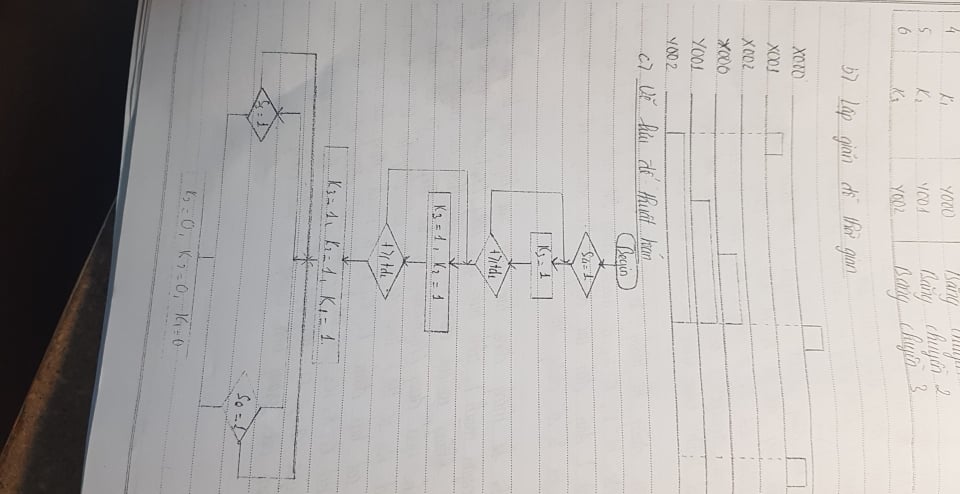 4 K₁ Y000 Băng chuyền
5 K₂ Y001 Băng chuyền 2
6 K3 Y002 Băng chuyền 3
b) Lập giản đồ thời gian
X000
X001
X002
Y000
Y001
Y002
c) Vẽ lưu đồ thuật toán
Begin
K3 = 1
t≥td₁
K3 = 1, K2 = 1
t≥td₁
K3 = 1, K2 = 1, K1 = 1
= 1
S0 = 1
K3 = 0, K2 = 0, K1 = 0